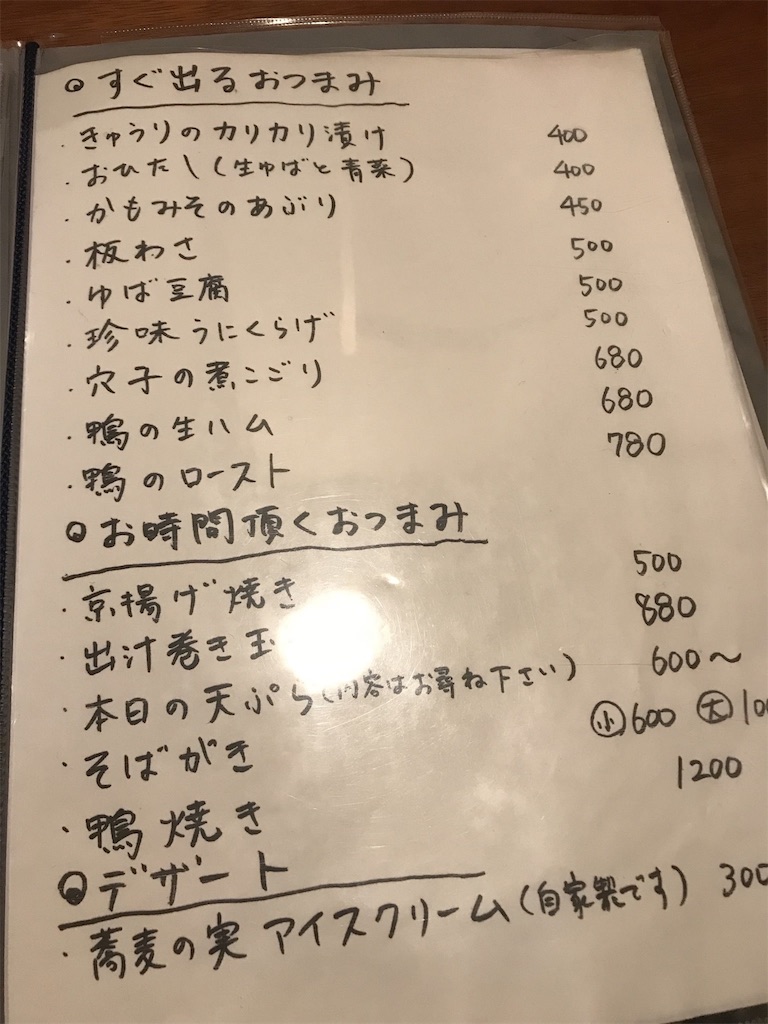 すぐ出るおつまみ
・きゅうりのカリカリ漬け 400
・おひたし(生ゆばと青菜) 400
・かもみそのあぶり 450
・板わさ 500
・ゆば豆腐 500
・珍味うにくらげ 500
・穴子の煮こごり 680
・鴨の生ハム 680
・鴨のロースト 780
お時間頂くおつまみ
・京揚げ焼き 500
・出汁巻き玉 880
・本日の天ぷら(内容はお尋ね下さい) 600〜
・そばがき 小600 大
・鴨焼き 1200
デザート
・蕎麦の実アイスクリーム(自家製です) 300